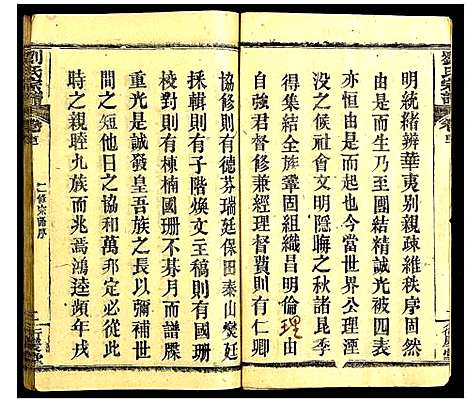 劉氏宗譜
明統緒辨華夷別親疎維秩序固然
由是而生乃至團結精誠光被四表
亦恒由是而起也今當世界公理湮
沒之候社會文明隱晦之秋諸昆季
得集結全族鞏固組織昌明倫理由
宗君督修兼經理督費則有仁卿
協修則有德芬瑞廷保田泰山燮廷
採輯則有子階煥文主稿則有國珊
校對則有棟楠國珊不朞月而譜牒
重光是誠發皇吾族之長以彌補世
間之短他日之協和萬邦定必從此
時之親睦九族而兆焉鴻逵頻年戎
二修宗譜序
劉氏宗譜